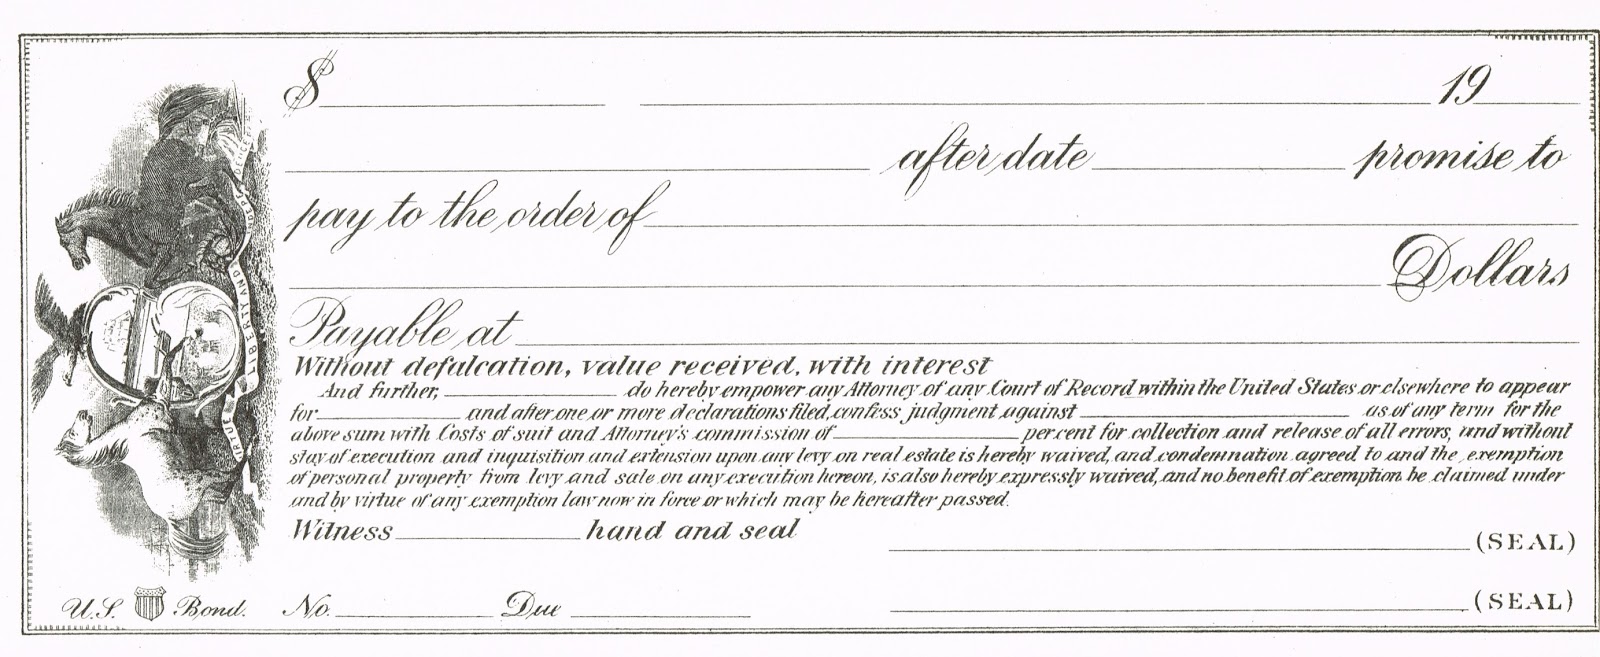 $ 19
after date promise to
pay to the order of
Dollars
Payable at
Without defalcation, value received, with interest
And further, do hereby empower any Attorney of any Court of Record within the United States or elsewhere to appear
for and after one or more declarations filed, confess judgment against as of any term for the
above sum with Costs of suit and Attorney's commission of per cent for collection and release of all errors, and without
stay of execution and inquisition and extension upon any levy on real estate is hereby waived, and condemnation agreed to and the exemption
of personal property from levy and sale on any execution hereon, is also hereby expressly waived, and no benefit of exemption be claimed under
and by virtue of any exemption law now in force or which may be hereafter passed.
Witness hand and seal
(SEAL)
U.S. Bond. No. Due (SEAL)
VIRTUE LIBERTY AND INDEPENDENCE